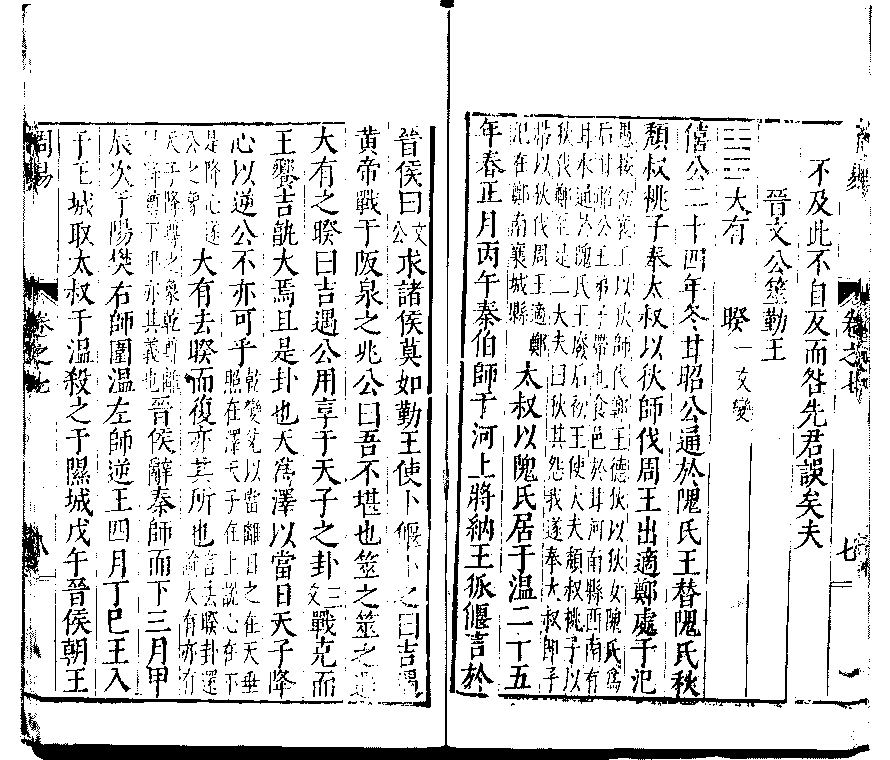 不及此不自反而咎先君誤矣夫
晉文公筮勤王
大有 睽 一爻變
僖公二十四年冬甘昭公通於隗氏王替隗氏秋
頹叔桃子奉太叔以狄師伐周王出適鄭處于氾
王以狄師伐鄭王德狄以狄女隗氏爲
后甘昭公王弟子帶也食邑於甘河南縣西南有
甘水通於隗氏王廢后初王使大夫頹叔桃子以
狄伐鄭至是二大夫曰狄其怨我遂奉大叔師子
帶以狄伐周王適鄭
氾在鄭南襄城縣
太叔以隗氏居于溫二十五
年春正月丙午秦伯師于河上將納王狐偃言於
晉侯曰文公求諸侯莫如勤王使卜偃卜之曰吉遇
黃帝戰于阪泉之兆公曰吾不堪也筮之筮之遇
大有之睽曰吉遇公用享于天子之卦三爻戰克而
王饗吉孰大焉且是卦也天爲澤以當日天子降
心以逆公不亦可乎乾變兌以當離日之在天垂
照在澤天子在上說心在下
是降心逆
公之象
大有去睽而復亦其所也言去睽卦還
論大有亦有
天子降尊之象乾尊離
卑降尊下卑亦其義也
晉侯辭秦師而下三月甲
辰次于陽樊右師圍溫左師逆王四月丁巳王入
于王城取太叔于溫殺之于隰城戊午晉侯朝王
周易
卷之七
八
卷之七
七